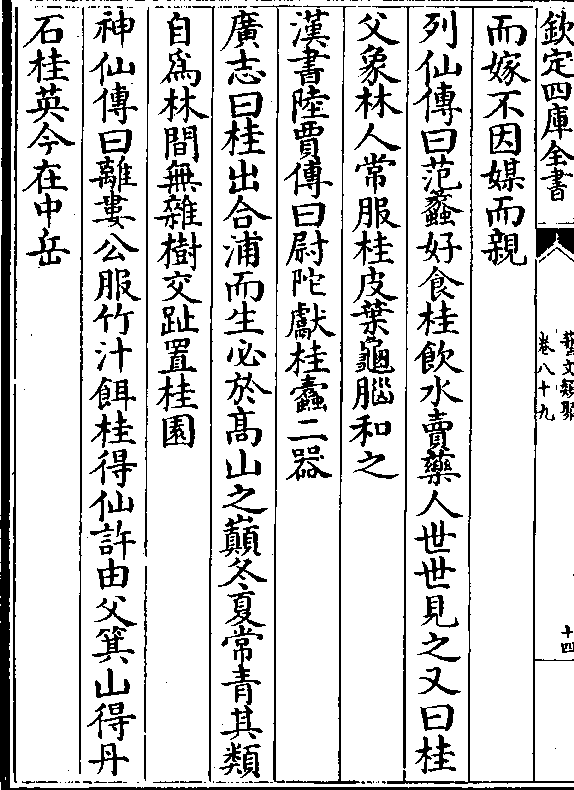 欽定四庫全書
藝文類聚
卷八十九
十四
而嫁不因媒而親
列仙傳曰范蠡好食桂飲水賣藥人世世見之又曰桂
父象林人常服桂皮葉龜腦和之
漢書陸賈傳曰尉陀獻桂蠹二器
廣志曰桂出合浦而生必於髙山之巔冬夏常青其類
自爲林間無雜樹交趾置桂園
神仙傳曰離婁公服竹汁餌桂得仙許由父箕山得丹
石桂英今在中岳